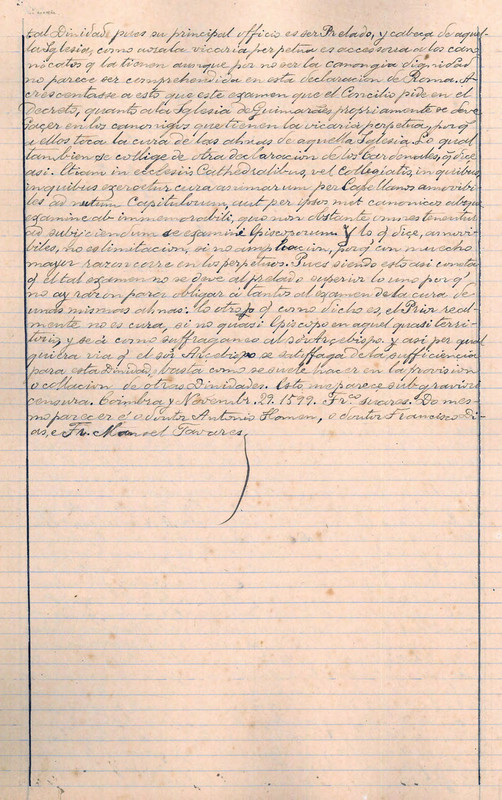 tal Dinidad pues su principal officio es ser Prelado, y cabeça de aquel-
la Iglesia, como aora la vicoria perpetua es accessorea a los cano-
nicatos q̃ la tienen aunque por no ser la canongia dignidad
no parece ser comprehendida en esta declaracion de Roma. A
crescentasse a esto que este examen que el Concilio pide en el
Decreto, quanto a la Iglesia de Guimarães propriamente se deve
haçer en los canonigos que tienen la vicaria perpetua, porq̃
a ellos toca la cura de las almas de aquella Iglesia. Lo qual
tambien se collige de otra declaracion de los Cardenales, q̃ diçe
asi. Etiam in ecclesiis Cathedralibus, vel collegiatis, in quibus,
in quibus exercetur cura animarum per Capellanos amovibi-
les ad nutum Capitulorum, aut per ipsos met canonicos absque
examine ab immemorabili, quo non obstante omnes tenentur
ad subiiciendum se examini Episcoporum. Y lo q̃ diçe, amovi-
biles, no es limitacion, si no ampliacion, porq̃ con mucho
mayor razon corre en los perpetuos. Pues siendo esto asi consta
q̃ el tal examen no se deve al prelado superior lo uno por q̃
no ay razon para obligar a tantos al examen de la cura de
unas mismas almas: lo otro p q̃ como dicho es, el Prior real-
mente no es cura, si no quasi Episcopo en aquel quasi terri-
torio, y se á como suffraganeo al sõr Arçebispo. y asi, por qual
quiera via q̃ el sõr Arçebispo se satisfaga de la sufficiencia
para esta dinidad, basta como se suele hacer en la provision
o collacion de otras Dinidades. Esto me parece sub graviori
censura. Coimbra y Novembr. 29. 1599. Fr.co suares. Do mes-
mo pareçer el o doutor Antonio Homem, o doutor Francisco Di-
as, e Fr. Manoel Tavares